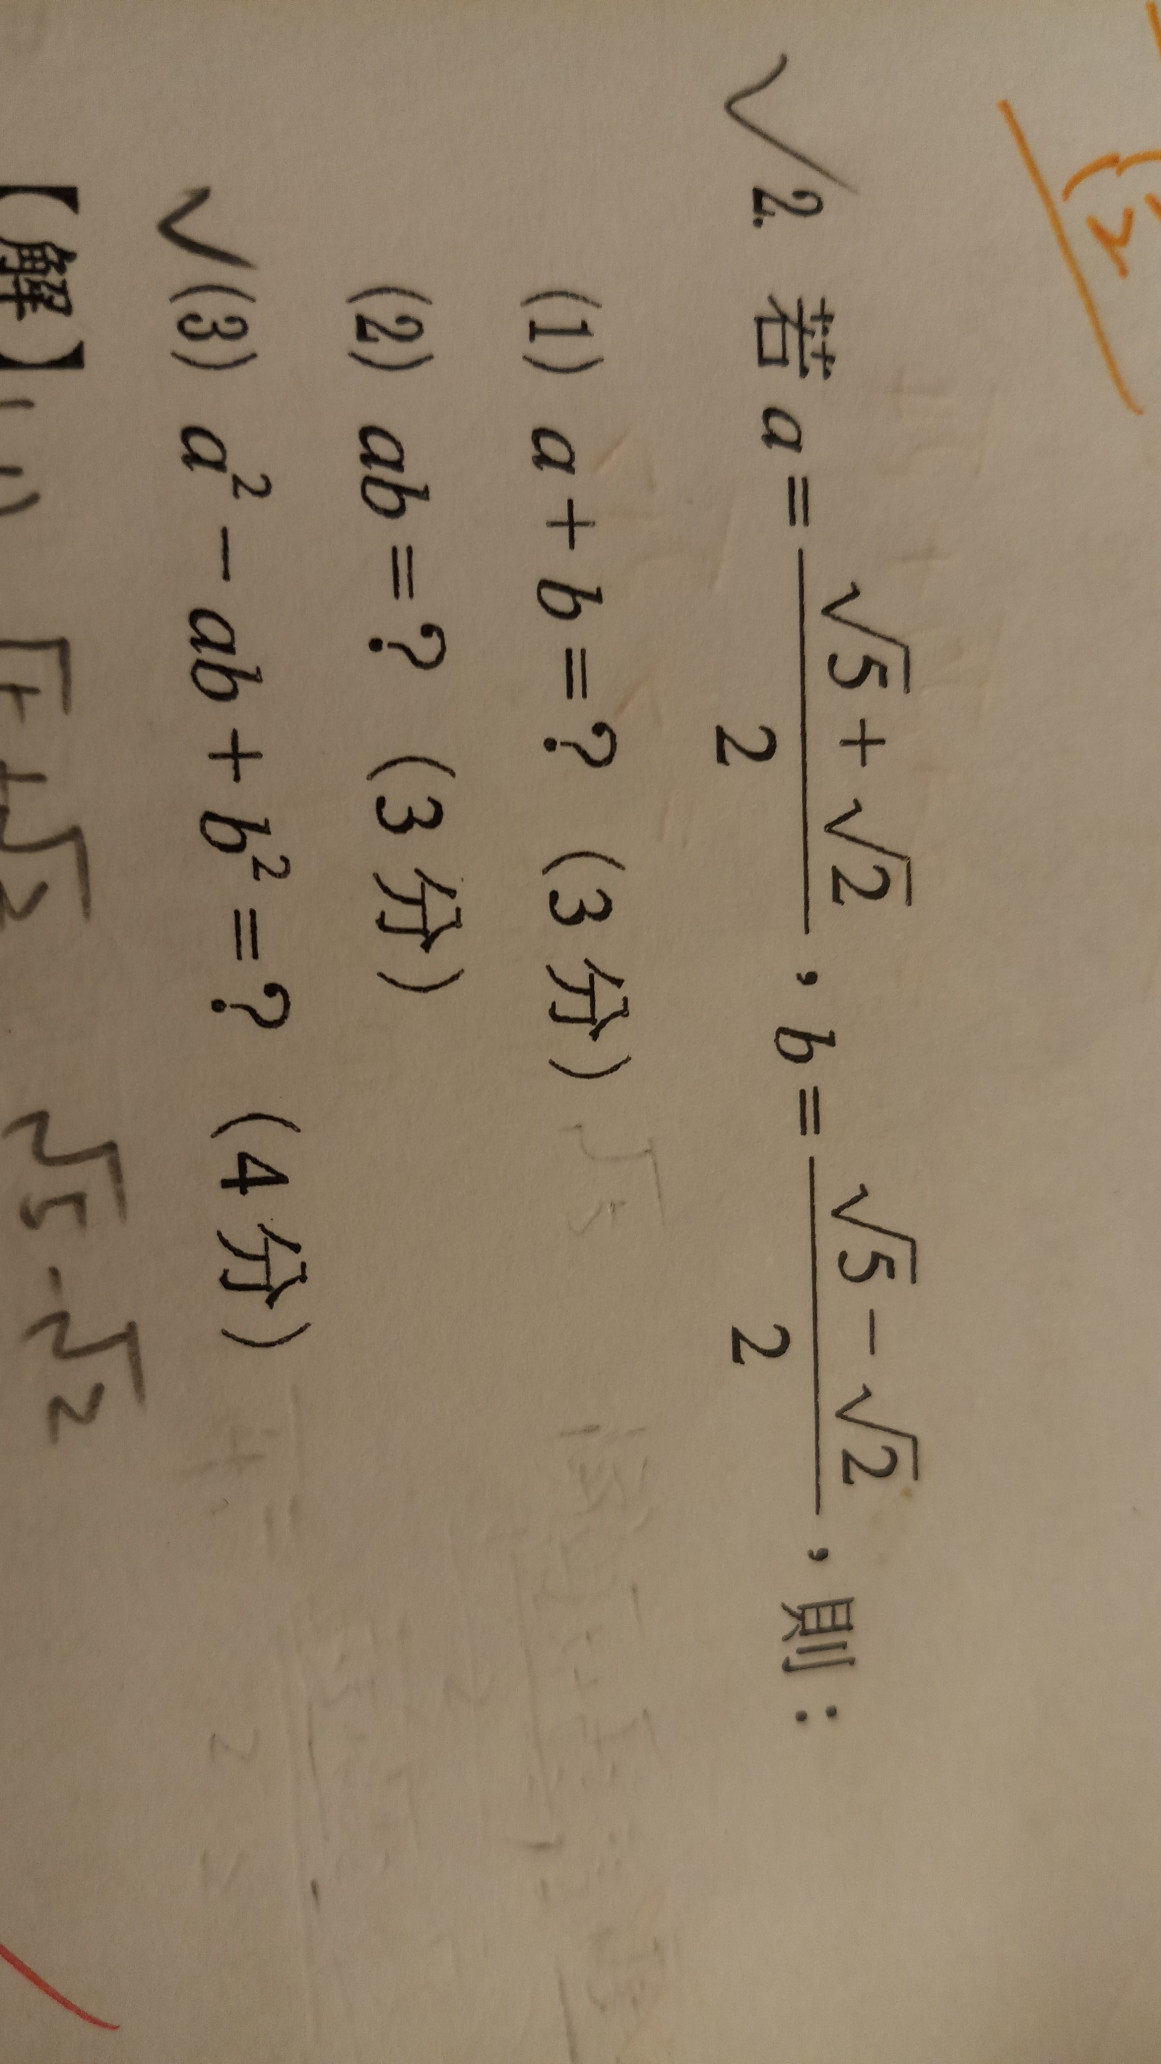 2. 若 a = (√5 + √2)/2 , b = (√5 − √2)/2 , 則:
(1) a + b = ? (3 分)
(2) ab = ? (3 分)
(3) a² − ab + b² = ? (4 分)
【解】(1) √5 + √2 √5 - √2